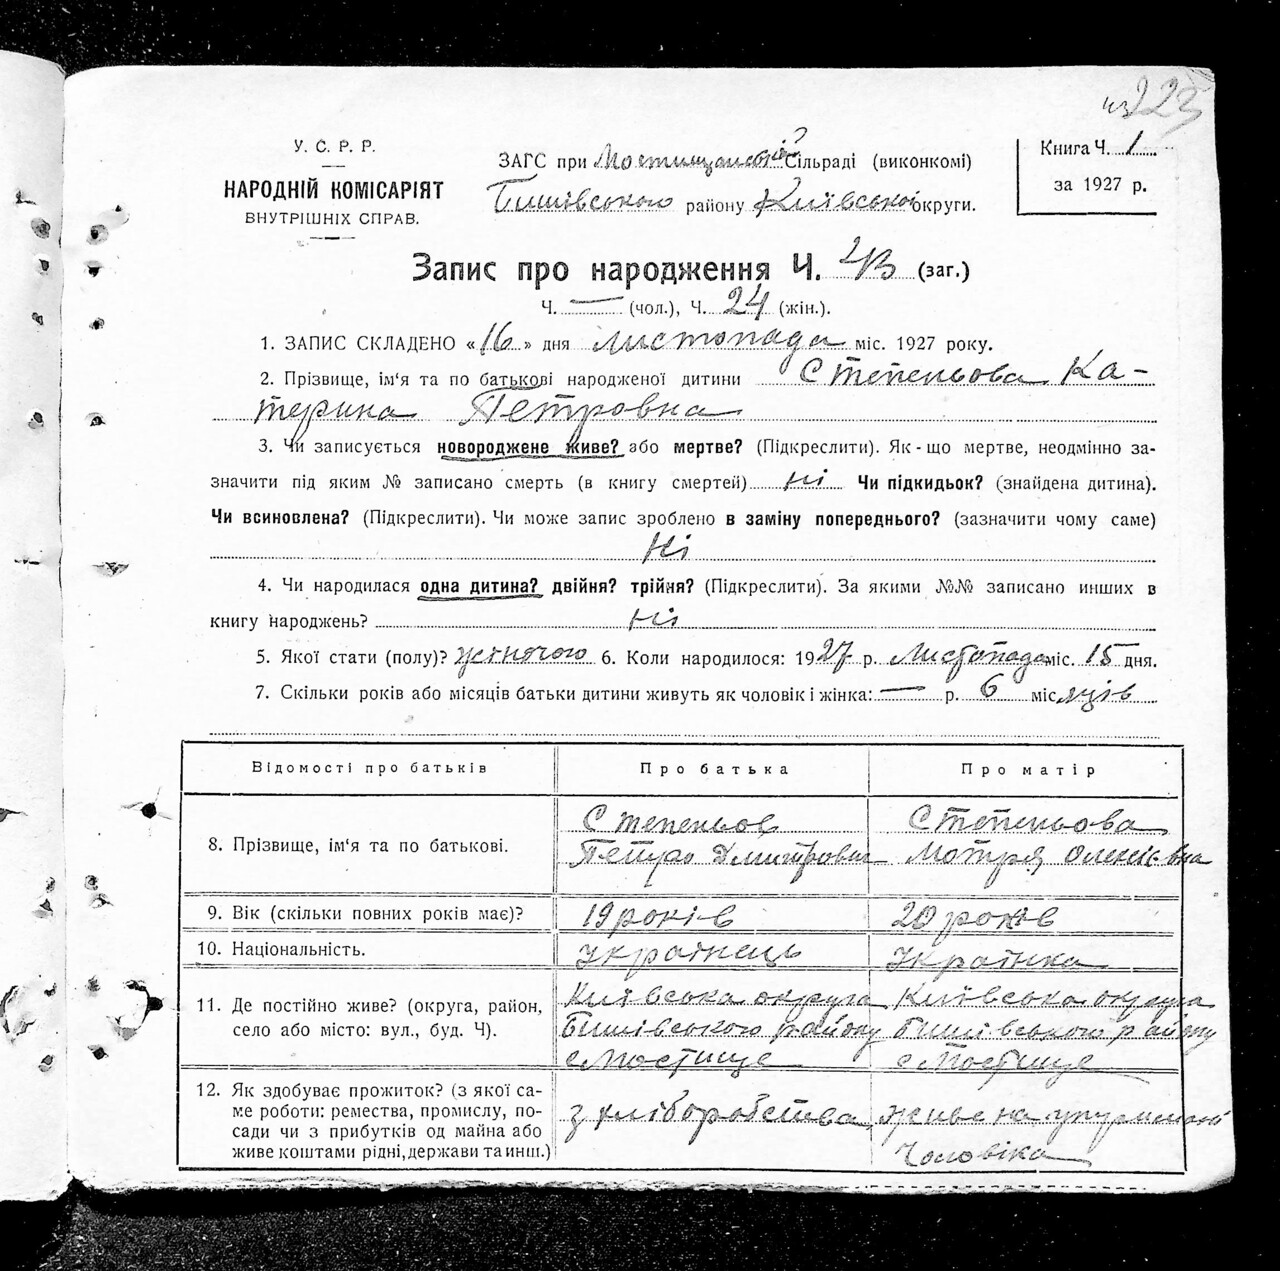 из 223
У. С. Р. Р.
НАРОДНІЙ КОМІСАРІЯТ
ВНУТРІШНІХ СПРАВ.
ЗАГС при Мостищанській Сільраді (виконкомі)
Бишівського району Київської округи.
Книга Ч. 1
за 1927 р.
Запис про народження Ч. (заг.)
Ч. — (чол.), Ч. 24 (жін.).
1. ЗАПИС СКЛАДЕНО «16» дня листопада міс. 1927 року.
2. Прізвище, ім‘я та по батькові народженої дитини Степеньова Ка-
терина Петровна
3. Чи записується новороджене живе? або мертве? (Підкреслити). Як-що мертве, неодмінно за-
значити під яким № записано смерть (в книгу смертей) ні Чи підкидьок? (знайдена дитина).
Чи всиновлена? (Підкреслити). Чи може запис зроблено в заміну попереднього? (зазначити чому саме)
Ні
4. Чи народилася одна дитина? двійня? трійня? (Підкреслити). За якими №№ записано инших в
книгу народжень? ні
5. Якої стати (полу)? жіночого 6. Коли народилося: 1927 р. Листопада міс. 15 дня.
7. Скільки років або місяців батьки дитини живуть як чоловік і жінка: — р. 6 місяців
Відомості про батьків Про батька Про матір
8. Прізвище, ім‘я та по батькові.
Степеньов
Петро Дмитрович
Степеньова
Мотря Олексієвна
9. Вік (скільки повних років має)? 19 років 20 років
10. Національність. Українець Українка
11. Де постійно живе? (округа, район,
село або місто: вул., буд. Ч).
Київська округа
Бишівського району
с Мостище
Київська округа
Бишівського району
с Мостище
12. Як здобуває прожиток? (з якої са-
ме роботи: ремества, промислу, по-
сади чи з прибутків од майна або
живе коштами рідні, держави та инш.)
з хліборобства
живе на
чоловіка